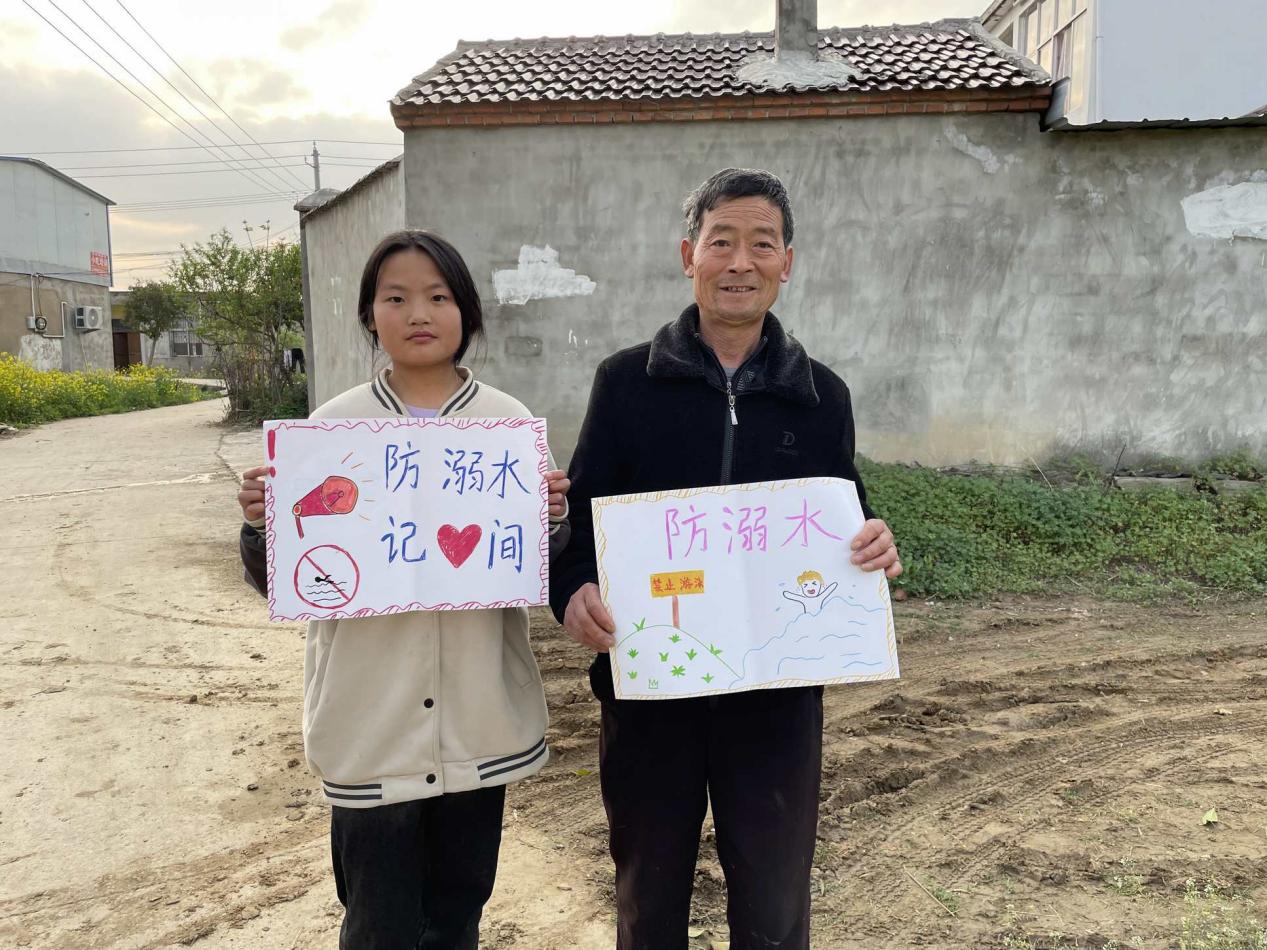 防溺水
记❤间
防溺水
禁止游泳
D